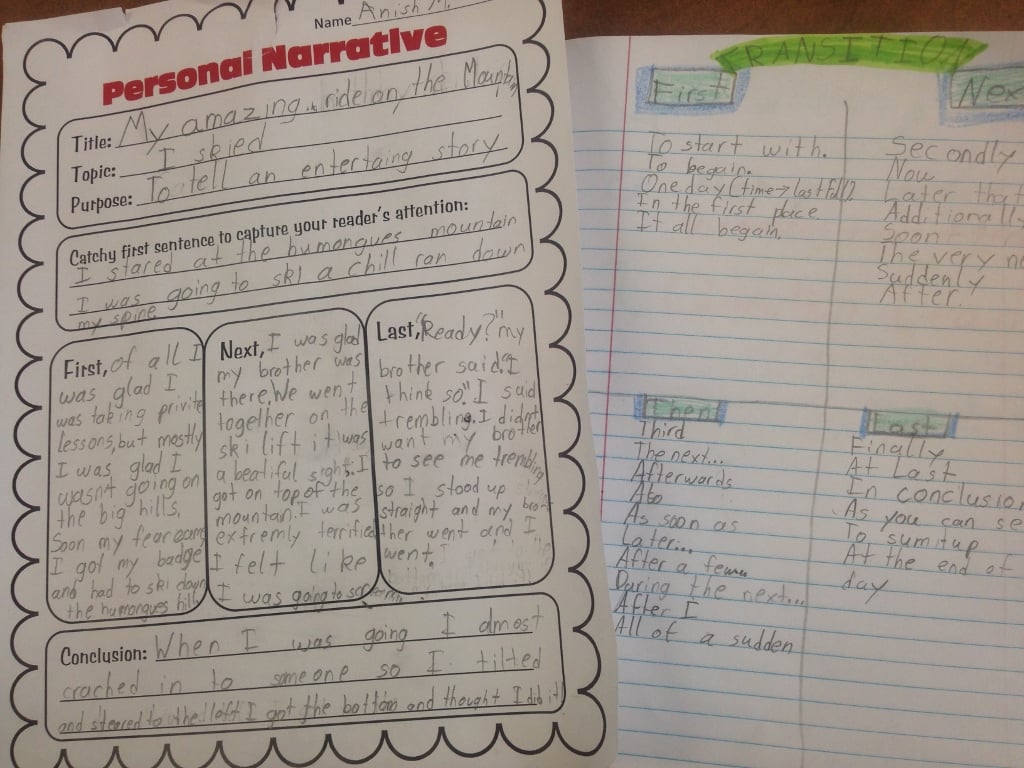 Name Anish M.
Personal Narrative
Title: My amazing ride on the
Topic: I skied
Purpose: To tell an entertaing story
Catchy first sentence to capture your reader's attention:
I stared at the humongues mountain
I was going to ski a chill ran down
my spine
First, of all I
was glad I
was taking privite
lessons, but mostly
I was glad I
wasn't going on
the big hills.
Soon my fear
I got my badge
and had to ski down
the humongues hill
Next, I was glad
my brother was
there. We went
together on the
ski lift it was
a beatiful sight. I
got on top of the
mountain. I was
extremly terrified
I felt like
I was going to
Last, "Ready?" my
brother said. "I
think so." I said
trembling. I didn't
want my brother
to see me trembling
so I stood up
straight and my bro
ther went and I
went.
Conclusion: When I was going I almost
crached in to someone so I tilted
and steared to the left I got the bottom and thought I did it!
TRANSITION
First
To start with.
To begain.
One day (time→last fall).
In the first place
It all begain.
Nex
Secondly
Now
Later that
Additionally
Soon
The very n
Suddenly
After
Then
Third
The next...
Afterwards
Also
As soon as
Later...
After a few
During the next...
After I
All of a sudden
Last
Finally
At Last
In conclusion
As you can se
To sum it up
At the end of
day